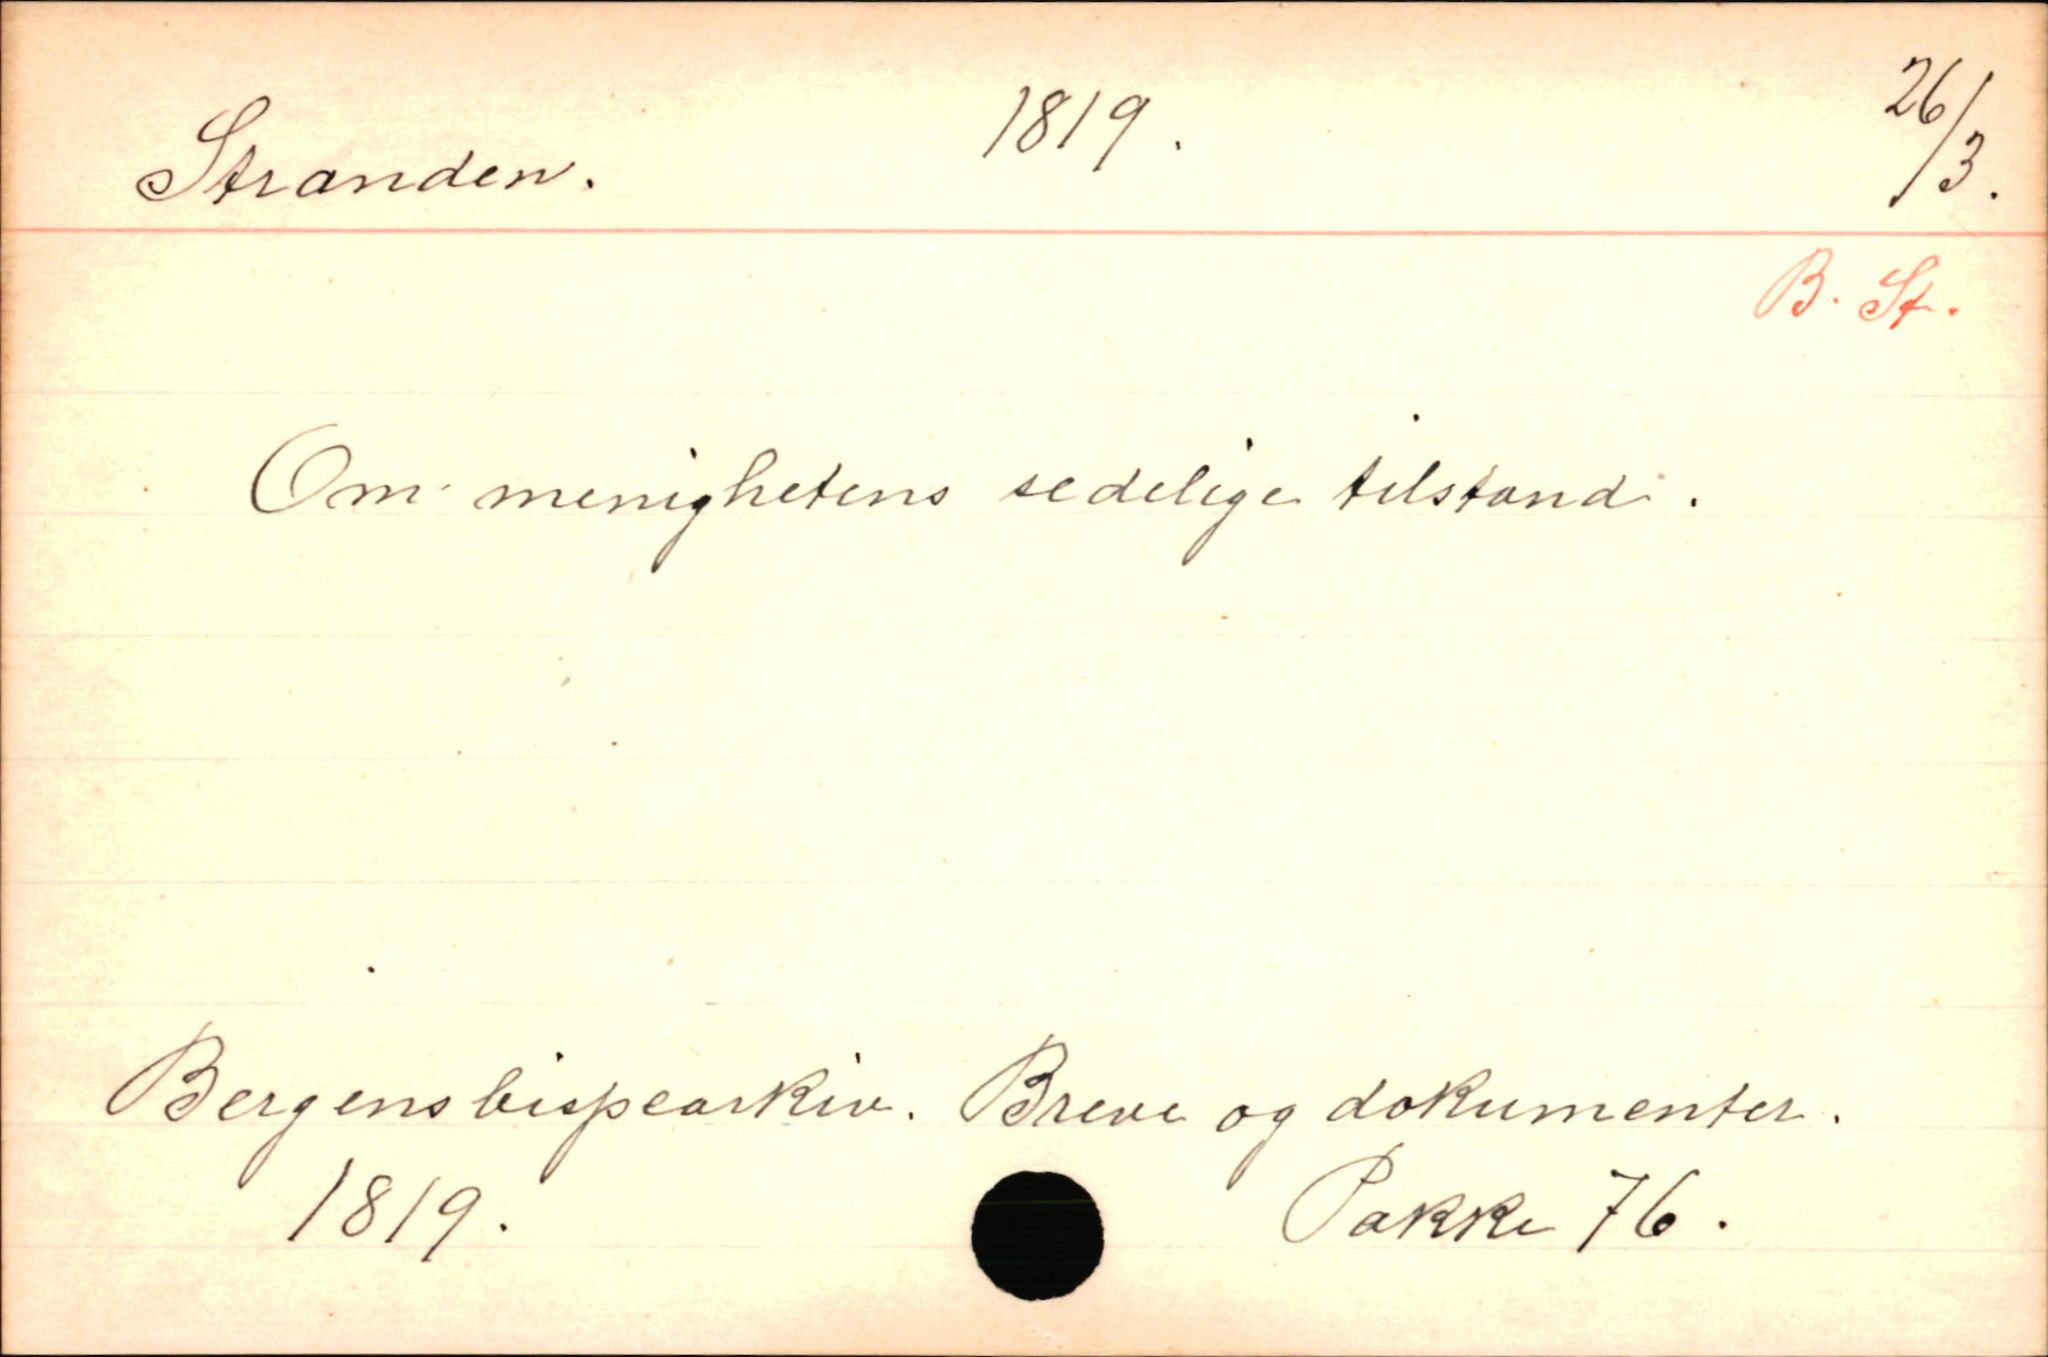 Stranden. 1819. 26/3.
B. St.
Om menighetens sedelige tilstand.
Bergens bispearkiv. Breve og dokumenter.
1819. Pakke 76.